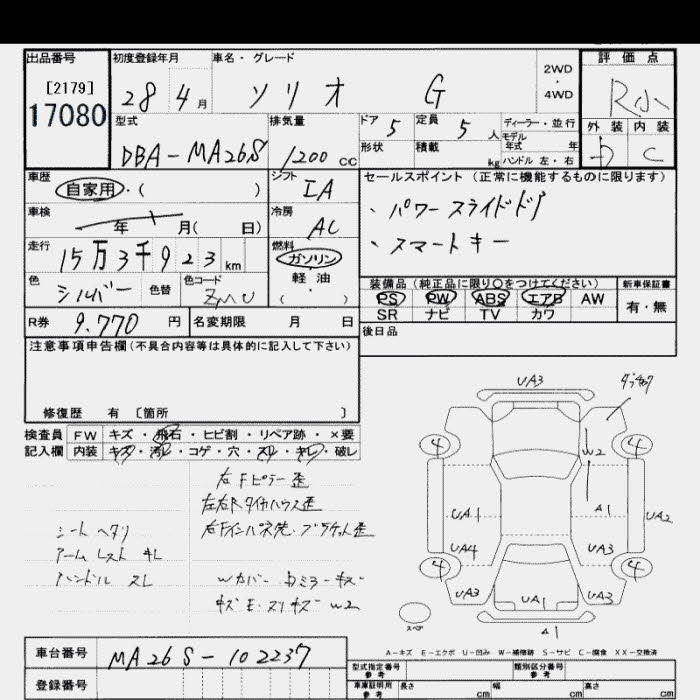 出品番号 初度登録年月 車名・グレード 2WD・4WD 評価点
[2179] 17080 28年4月 ソリオ G R小
型式 排気量 ドア 5 定員 5人 ディーラー・並行 外装 内装
DBA-MA26S 1200cc 形状 積載 kg モデル年式 年 ハンドル 左・右 C
車歴 自家用・( ) シフト IA セールスポイント (正常に機能するものに限ります)
車検 年 月( 日) 冷房 AC 、パワースライドドア
走行 15万3千923km 燃料 ガソリン・軽油・( ) 、スマートキー
色 シルバー 色替 色コード ZMU 装備品 (純正品に限り○をつけてください) 新車保証書
PS PW ABS エアB AW 有・無
SR ナビ TV カワ
R券 9.770円 名変期限 月 日 後日品
注意事項申告欄 (不具合内容等は具体的に記入して下さい)
修復歴 有 [箇所 ]
検査員記入欄 FW キズ・飛石・ヒビ割・リペア跡・×要
内装 キズ・汚レ・コゲ・穴・スレ・キレ・破レ
右Fピラー歪
左右Rタイヤハウス歪
シートヘタリ
アームレスト キレ
ハンドル スレ
UA3
4 4
W2
UA1 A1 UA2
UA4 UA3
4 4
UA3 UA1 UA3
スペア A1
A-キズ E-エクボ U-凹み W-補修跡 S-サビ C-腐食 XX-交換済
車台番号 MA26S-102237 型式指定番号 参考 類別区分番号 参考
登録番号 車庫証明用 参考 長さ cm 幅 cm 高さ cm